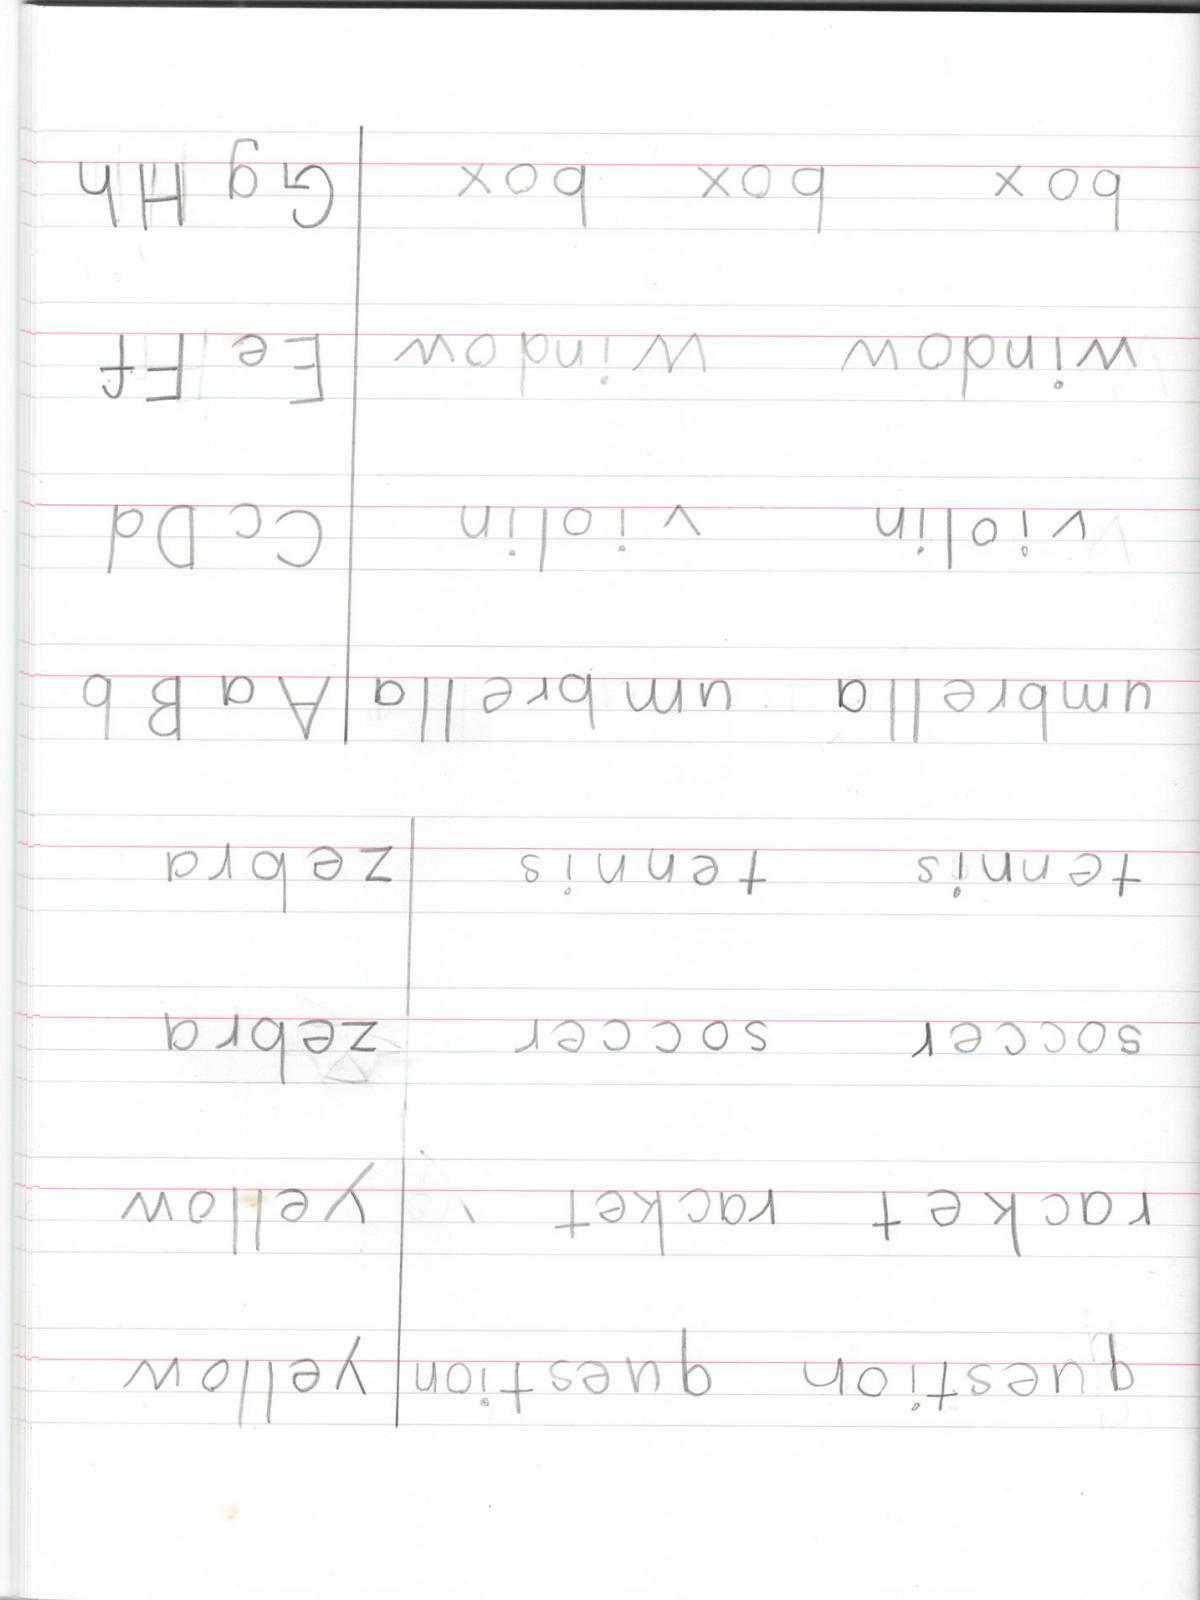 question question yellow
racket racket yellow
soccer soccer zebra
tennis tennis zebra
umbrella umbrella Aa Bb
violin violin Cc Dd
window window Ee Ff
box box box Gg Hh